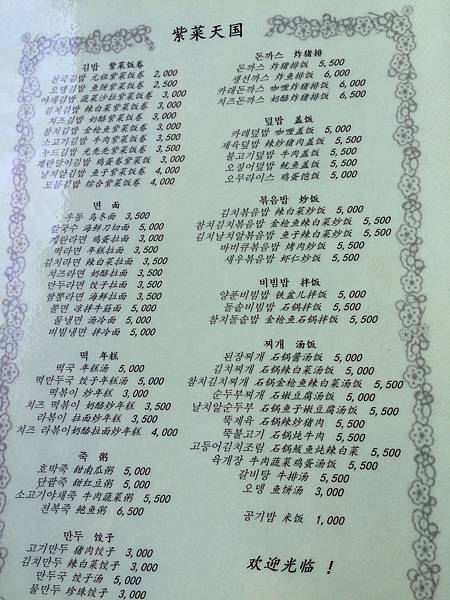 紫菜天国
김밥 紫菜饭卷
천국김밥 元祖紫菜饭卷 2,000
오뎅김밥 鱼饼紫菜饭卷 2,500
야채김밥 蔬菜沙拉紫菜饭卷 3,000
김치김밥 辣白菜紫菜饭卷 3,000
치즈김밥 奶酪紫菜饭卷 3,000
참치김밥 金枪鱼紫菜饭卷 3,000
소고기김밥 牛肉紫菜饭卷 3,500
누드김밥 光秃秃紫菜饭卷 3,500
계란말이김밥 鸡蛋卷紫菜饭 3,000
날치알김밥 鱼子紫菜饭卷 4,000
모듬김밥 综合紫菜饭卷 4,000
면 面
우동 乌冬面 3,500
칼국수 海鲜刀切面 5,000
계란라면 鸡蛋拉面 3,000
떡라면 年糕拉面 3,500
김치라면 辣白菜拉面 3,500
치즈라면 奶酪拉面 3,500
만두라면 饺子拉面 3,500
짬뽕라면 海鲜拉面 3,500
쫄면 凉拌牛筋面 5,000
물냉면 汤冷面 5,000
비빔냉면 拌冷面 5,000
떡 年糕
떡국 年糕汤 5,000
떡만두국 饺子年糕汤 5,000
떡볶이 炒年糕 3,000
치즈 떡볶이 奶酪炒年糕 3,500
라볶이 拉面炒年糕 3,500
치즈 라볶이 奶酪拉面炒年糕 4,000
죽 粥
호박죽 甜南瓜粥 5,000
단팥죽 甜红豆粥 5,000
소고기야채죽 牛肉蔬菜粥 5,500
전복죽 鲍鱼粥 6,500
만두 饺子
고기만두 猪肉饺子 3,000
김치만두 辣白菜饺子 3,000
만두국 饺子汤 5,000
물만두 珍珠饺子 3,000
돈까스 炸猪排
돈까스 炸猪排饭 5,500
생선까스 炸鱼排饭 6,000
카레돈까스 咖喱炸猪排饭 6,000
치즈돈까스 奶酪炸猪排饭 6,500
덮밥 盖饭
카레덮밥 咖喱盖饭 5,000
제육덮밥 辣炒猪肉盖饭 5,500
불고기덮밥 牛肉盖饭 5,500
오징어덮밥 鱿鱼盖饭 5,500
오무라이스 鸡蛋饱饭 5,000
볶음밥 炒饭
김치볶음밥 辣白菜炒饭 5,000
참치김치볶음밥 金枪鱼辣白菜炒饭 5,500
김치날치알볶음밥 鱼子辣白菜炒饭 5,500
바비큐볶음밥 烤肉炒饭 5,500
새우볶음밥 虾仁炒饭 5,500
비빔밥 拌饭
양푼비빔밥 铁盆儿拌饭 5,000
돌솥비빔밥 石锅拌饭 5,500
참치돌솥밥 金枪鱼石锅拌饭 5,500
찌개 汤饭
된장찌개 石锅酱汤饭 5,000
김치찌개 石锅辣白菜汤饭 5,000
참치김치찌개 石锅金枪鱼辣白菜汤饭 5,500
순두부찌개 石锅嫩豆腐汤饭 5,000
날치알순두부 石锅鱼子嫩豆腐汤饭 5,500
뚝제육 石锅辣炒猪肉 5,500
뚝불고기 石锅炖牛肉 5,500
고등어김치조림 石锅鲅鱼炖辣白菜 5,500
육개장 牛肉蔬菜鸡蛋汤饭 5,500
갈비탕 牛排汤 5,500
오뎅 鱼饼汤 3,000
공기밥 米饭 1,000
欢迎光临 !